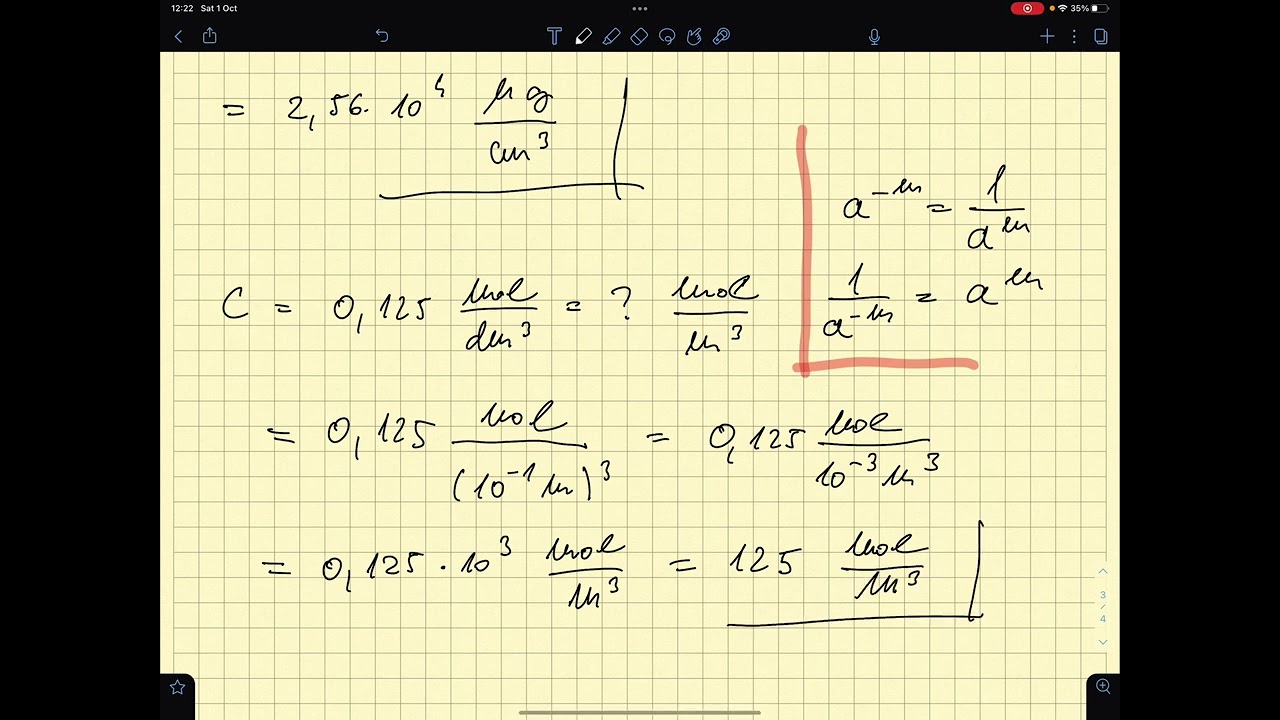 12:22 Sat 1 Oct
35%
= 2,56 · 10⁴ μg/cm³
a⁻ᵐ = 1/aᵐ
1/a⁻ᵐ = aᵐ
C = 0,125 mol/dm³ = ? mol/m³
= 0,125 mol/(10⁻¹ m)³ = 0,125 mol/10⁻³ m³
= 0,125 · 10³ mol/m³ = 125 mol/m³
3
/
4